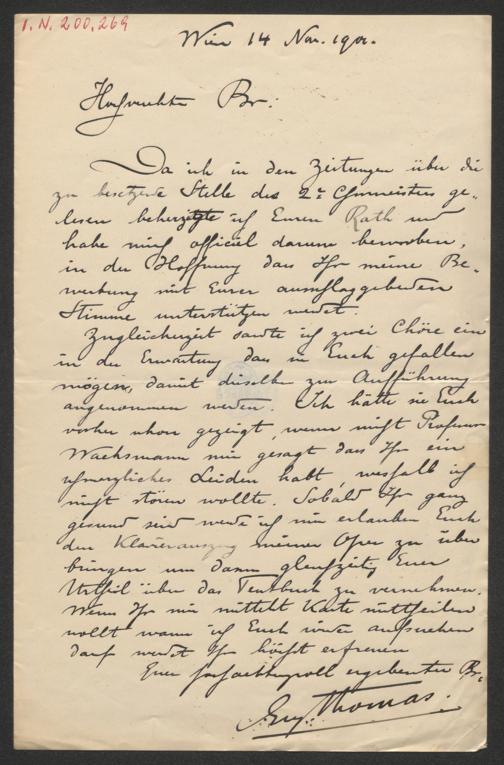 I.N. 200.269
Wien 14 Nov. 1901.
Hochverehrter Br:
Da ich in den Zeitungen über die
zu besetzende Stelle des 2ⁿ Chormeisters ge-
lesen beherzigte ich Euren Rath und
habe mich officiel darum beworben,
in der Hoffnung dass Ihr meine Be-
werbung mit Eurer ausschlaggebenden
Stimme unterstützen werdet.
Zugleicherzeit sandte ich zwei Chöre ein
in der Erwartung das sie Euch gefallen
mögen, damit dieselben zur Aufführung
angenommen werden. Ich hätte sie Euch
vorher schon gezeigt, wenn nicht Professor
Wachsmann mir gesagt dass Ihr ein
schmerzliches Leiden habt, weshalb ich
nicht stören wollte. Sobald Ihr ganz
gesund seid werde ich mir erlauben Euch
den Klavierauszug meiner Oper zu über
bringen um dann gleichzeitig Euer
Urtheil über das Textbuch zu vernehmen.
Wenn Ihr mir mittelst Karte mittheilen
wollt wann ich Euch wieder aufsuchen
darf werdet Ihr höchst erfreuen
Euer hochachtungsvoll ergebenster Br:
Eug. Thomas.